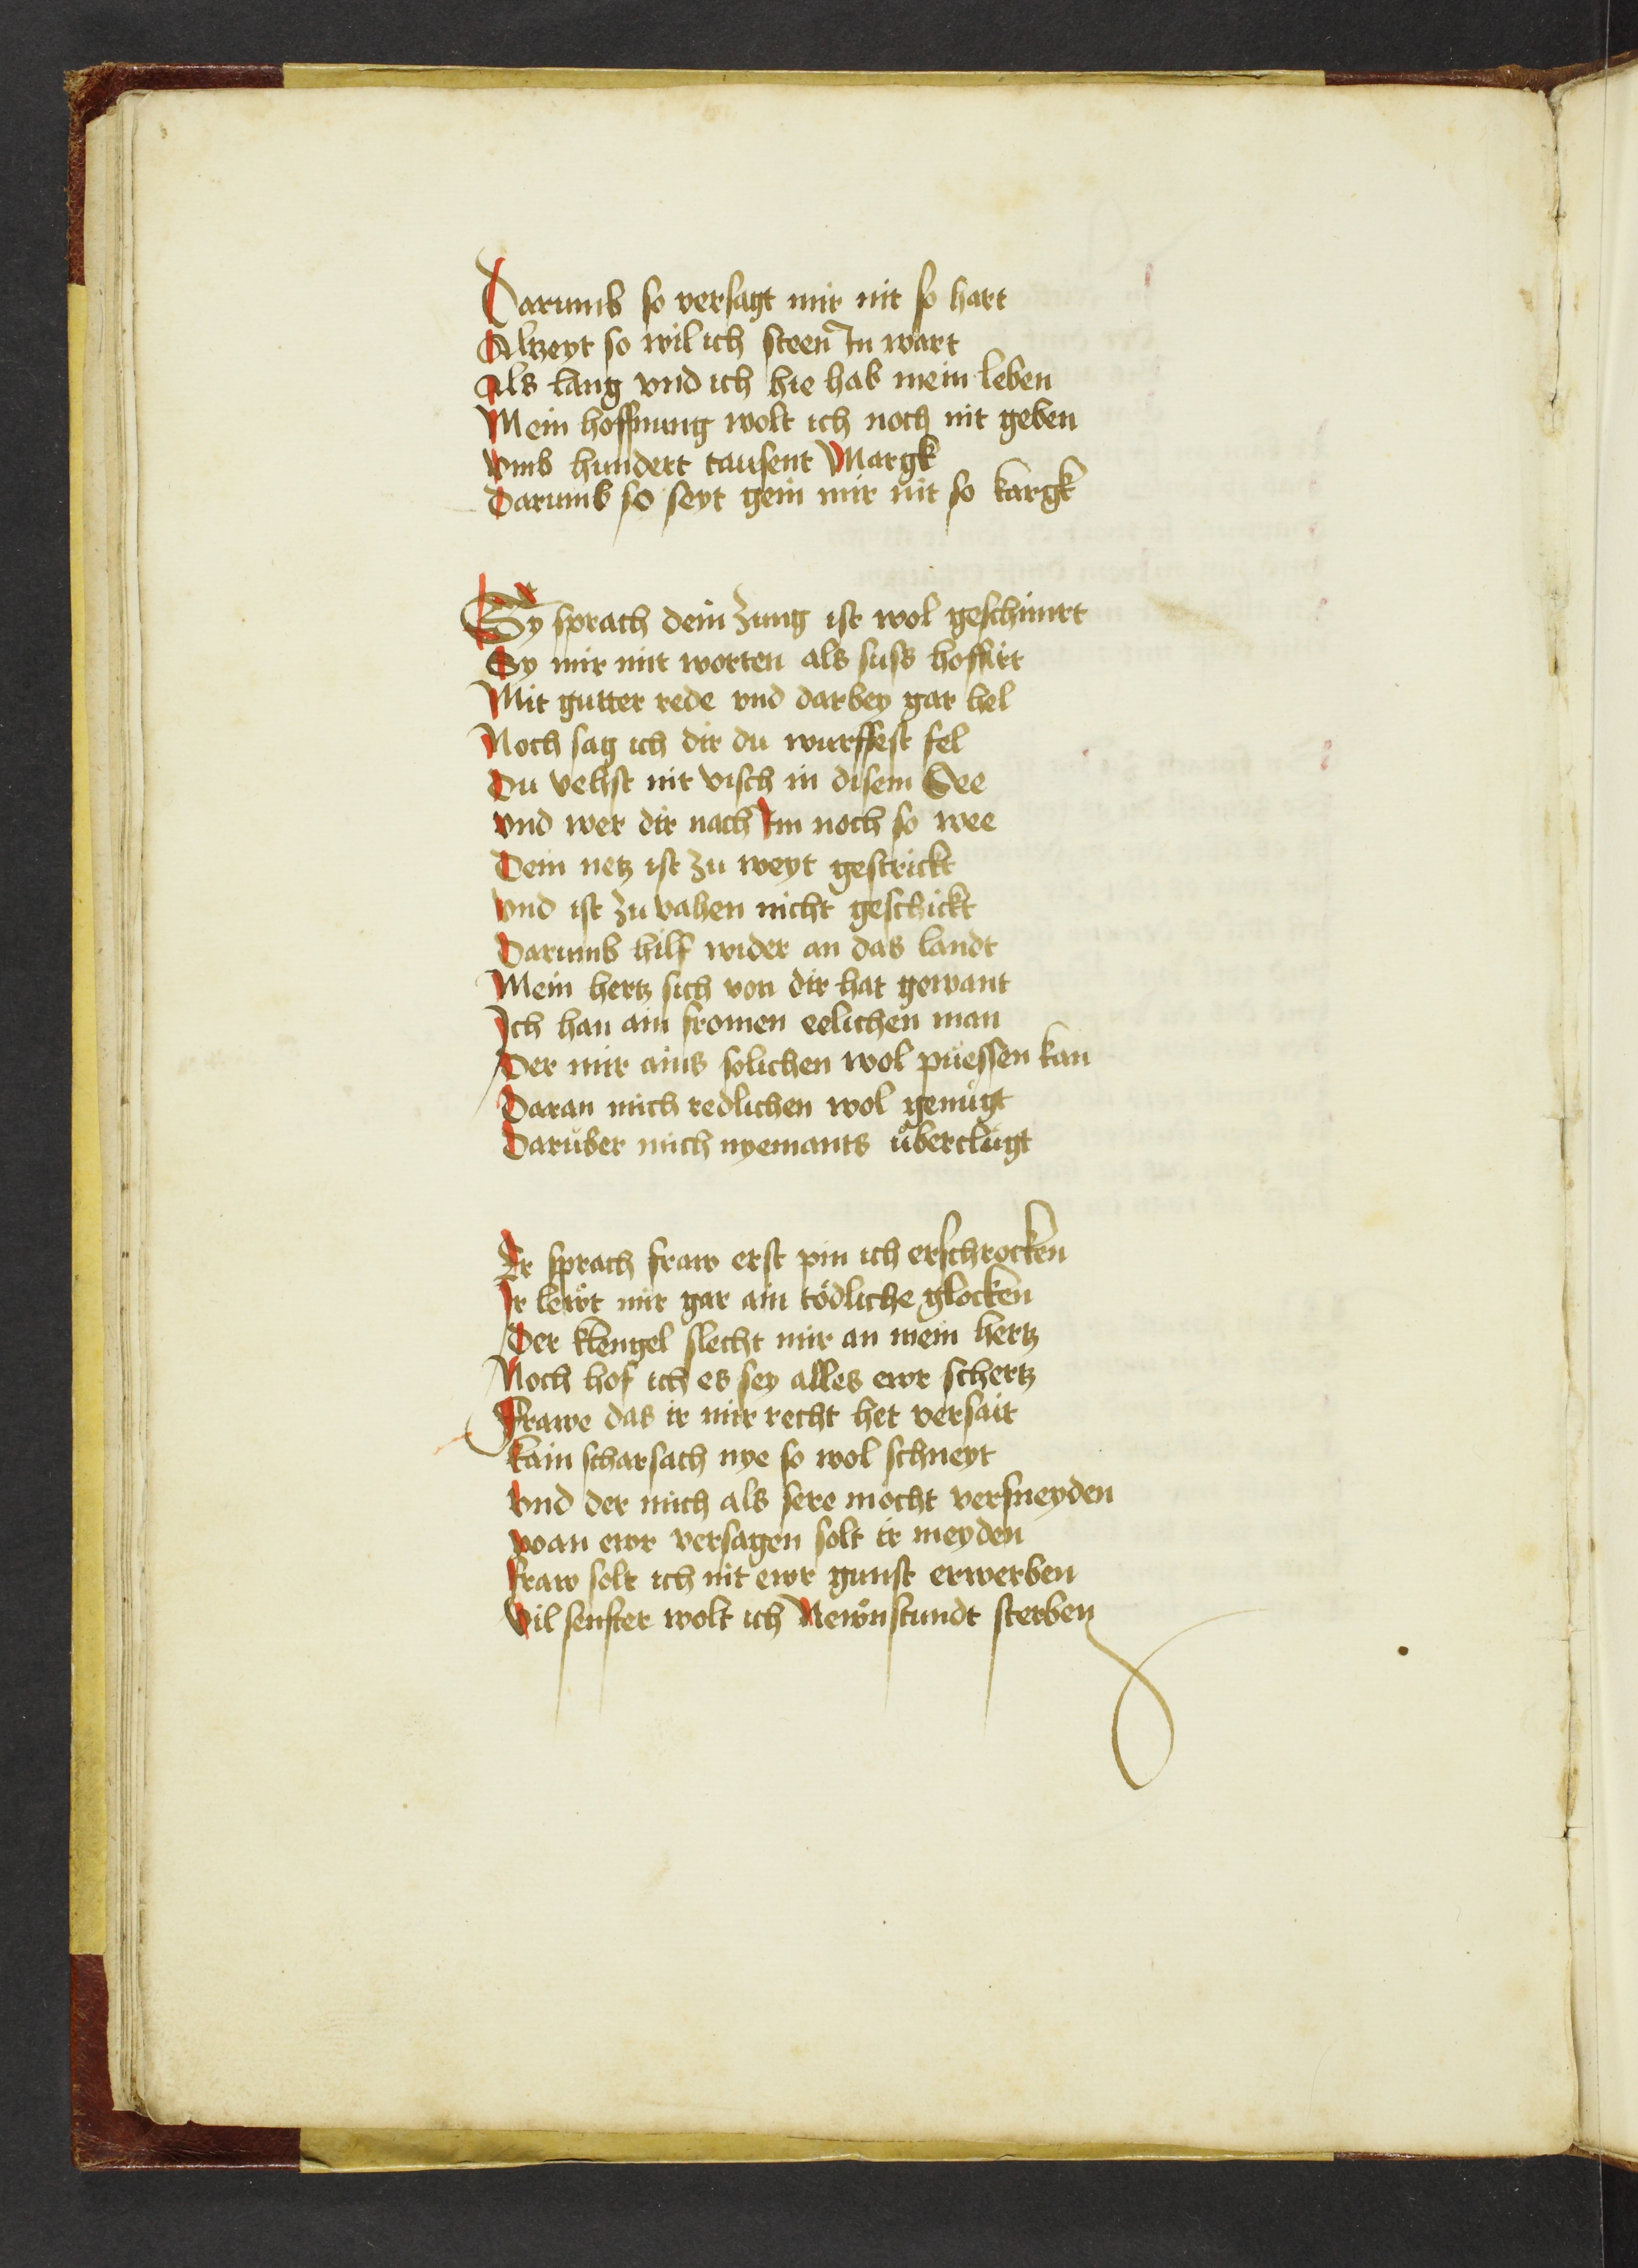 Darumb so versagt mir nit so hart
Alzeyt so wil ich steen In wart
Als lang vnd ich hie hab mein leben
Mein hoffnung wolt ich noch nit geben
vmb hundert tausent Margk
Darumb so seyt gein mir nit so kargk
Sy sprach dein zung ist wol geschmirt
Sy mir mit worten als suss hoffirt
Mit gutter rede vnd darbey gar hel
Noch sag ich dir du wurffest fel
Du vehst nit visch in disem See
vnd wer dir nach Im noch so wee
Dein netz ist zu weyt gestrickt
vnd ist zu vahen nicht geschickt
Darumb hilf wider an das landt
Mein hertz sich von dir hat gewant
Ich han ain fromen eelichen man
Der mir ains solichen wol püessen kan
Daran mich redlichen wol genügt
Darüber mich nyemants überclügt
Er sprach fraw erst pin ich erschrocken
Ir lewt mir gar ain tödliche glocken
Der klengel slecht mir an mein hertz
Noch hof ich es sey alles ewr schertz
Frawe das ir mir recht het versait
kain scharsach nye so wol schneyt
vnd der mich als sere mocht versneyden
wan ewr versagen solt ir meyden
fraw solt ich nit ewr gunst erwerben
Vil senfter wolt ich Newnstundt sterben